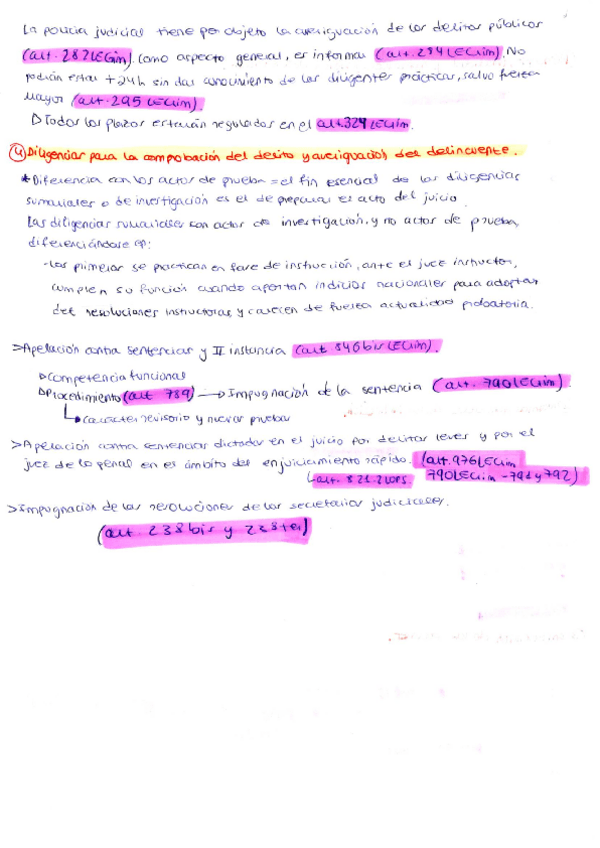 La policía judicial tiene por objeto la averiguación de los delitos públicos
(art. 282 LECrim). Como aspecto general, es informar (art. 284 LECrim). No
podrán estar +24h sin dar conocimiento de las diligencias practicar, salvo fuerza
mayor (art. 295 LECrim).
▷Todos los plazos estarán regulados en el art 324 LECrim.
④ Diligencias para la comprobación del delito y averiguación del delincuente.
*Diferencia con los actos de prueba = el fin esencial de las diligencias
sumariales o de investigación es el de preparar el acto del juicio.
Las diligencias sumariales son actos de investigación, y no actos de prueba,
diferenciándose en:
-Las primeras se practican en fase de instrucción, ante el juez instructor,
cumplen su función cuando aportan indicios racionales para adoptar
del resoluciones instructoras y carecen de fuerza probatoria.
>Apelación contra sentencias y II instancia (art 846 bis LECrim).
▷Competencia funcional
▷Procedimiento (art 789) → Impugnación de la sentencia (art. 790 LECrim)
↳ Carácter revisorio y nuevas pruebas
>Apelación contra sentencias dictadas en el juicio por delitos leves y por el
juez de lo penal en el ámbito del enjuiciamiento rápido. (art. 976 LECrim
art. 82.1.2 LOPJ. 790 LECrim - 791 y 792)
>Impugnación de las resoluciones de los secretarios judiciales.
(art. 238 bis y 238 ter)